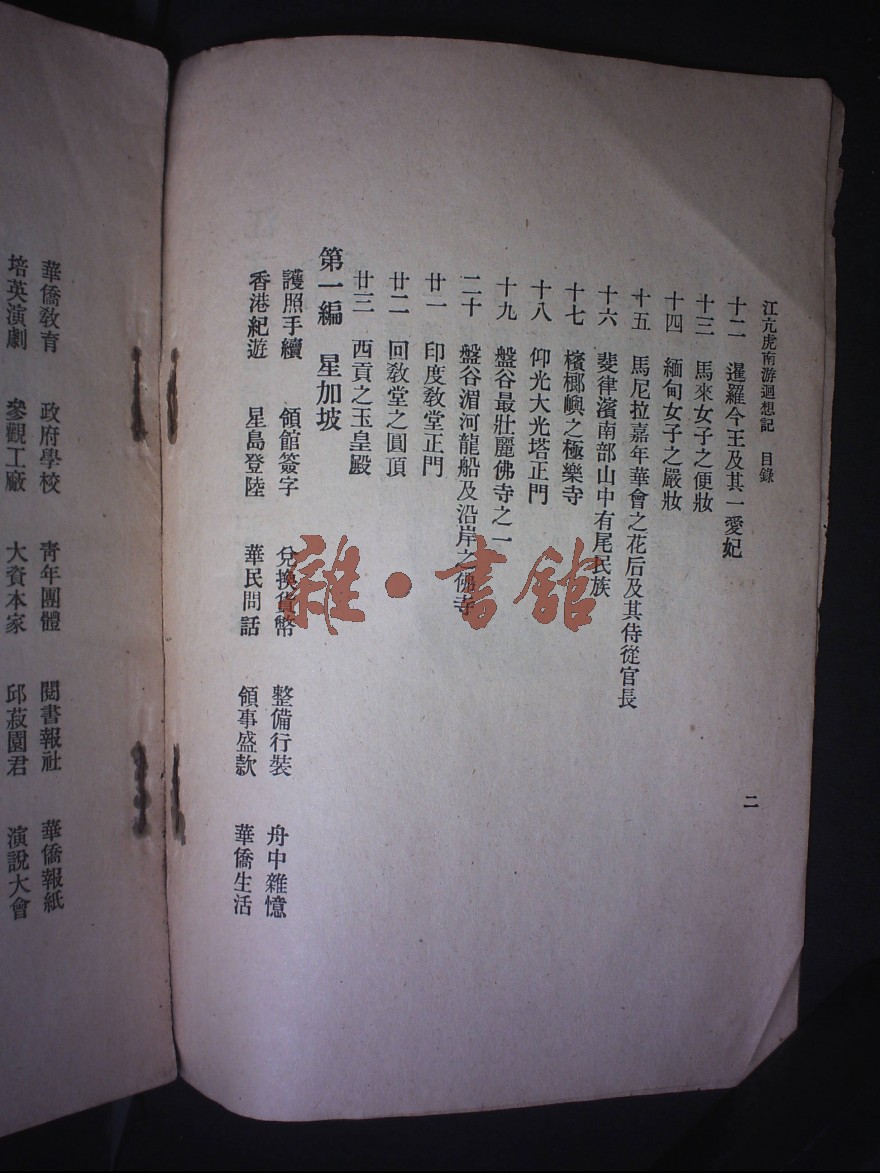 江亢虎南游迴想記　目錄
二
十二　暹羅今王及其一愛妃
十三　馬來女子之便妝
十四　緬甸女子之嚴妝
十五　馬尼拉嘉年華會之花后及其侍從官長
十六　斐律濱南部山中有尾民族
十七　檳榔嶼之極樂寺
十八　仰光大光塔正門
十九　盤谷最壯麗佛寺之一
二十　盤谷湄河龍船及沿岸之佛寺
廿一　印度教堂正門
廿二　回教堂之圓頂
廿三　西貢之玉皇殿
第一編　星加坡
護照手續　領館簽字　兌換貨幣　整備行裝　舟中雜憶
香港紀遊　星島登陸　華民問話　領事盛款　華僑生活
華僑教育　政府學校　靑年團體　閱書報社　華僑報紙
培英演劇　參觀工廠　大資本家　邱菽園君　演說大會
雜·書館